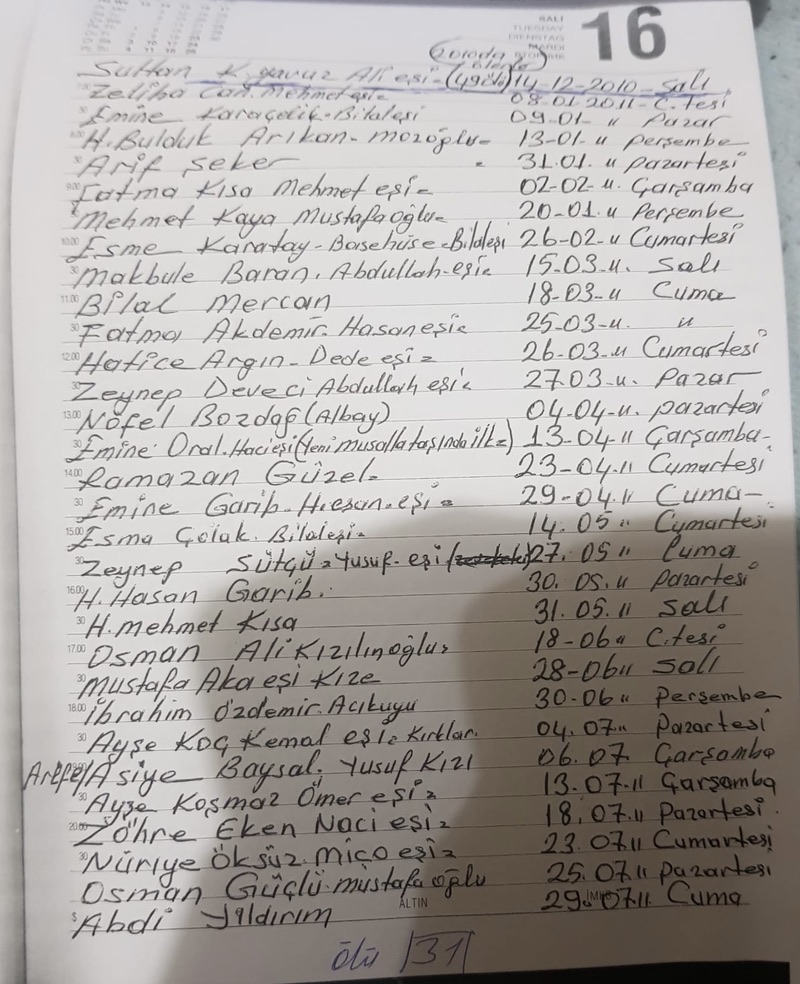 SALI
TUESDAY
DIENSTAG
MARDI
16
Sultan K. yavuz Ali eşi- 14-12-2010- Salı
Zeliha Can. Mehmet eşi= 08-01 2011- C.tesi
Emine Karaçelik-Bilaleşi 09-01- " Pazar
H. Bulduk Arıkan- mozoğlu- 13-01- " perşembe
Arif Şeker = 31.01. " pazartesi
Fatma Kısa Mehmet eşi= 02-02- ". Çarşamba
Mehmet Kaya Mustafaoğlu= 20-01. " Perşembe
Esme Karatay-Basehüse-Bilaleşi 26-02-" Cumartesi
Makbule Baran. Abdullah-eşi= 15-03-". Salı
Bilal Mercan 18-03-" Cuma
Fatma Akdemir. Hasaneşi= 25-03-". "
Hatice Argın-Dede eşi= 26-03-" Cumartesi
Zeynep Deveci Abdullah eşi= 27-03-". Pazar
Nofel Bozdağ (Albay) 04-04-". pazartesi
Emine Oral. Hacieşi (Yeni musalla taşında ilk=) 13-04-11 Çarşamba-
Ramazan Güzel- 23-04.11 Cumartesi
Emine Garib. H.esan.eşi= 29-04.11 Cuma-
Esma Çolak. Bilaleşi= 14. 05 " Cumartesi
Zeynep Sütçü= Yusuf-eşi 27. 05 " Cuma
H. Hasan Garib. 30. 05. " Pazartesi
H. mehmet Kısa 31. 05. 11 Salı
Osman Ali Kızılınoğlu= 18-06 " C.tesi
Mustafa Aka eşi Kıze 28-06 " Salı
İbrahim Özdemir. Acıkuyu 30-06 " Perşembe
Ayşe Koç Kemal eşi= Kırklar. 04. 07. " Pazartesi
Arefe/ Asiye Baysal. Yusuf Kızı 06. 07. Çarşamba
Ayşe Koşmaz Ömer eşi= 13. 07-11 Çarşamba
Zöhre Eken Naci eşi= 18. 07.11 Pazartesi.
Nüriye Öksüz. miço eşi= 23. 07.11 Cumartesi
Osman Güçlü-mustafa oğlu 25. 07 11 pazartesi
Abdi Yıldırım 29. 07.11. Cuma
ALTIN
ölü 31